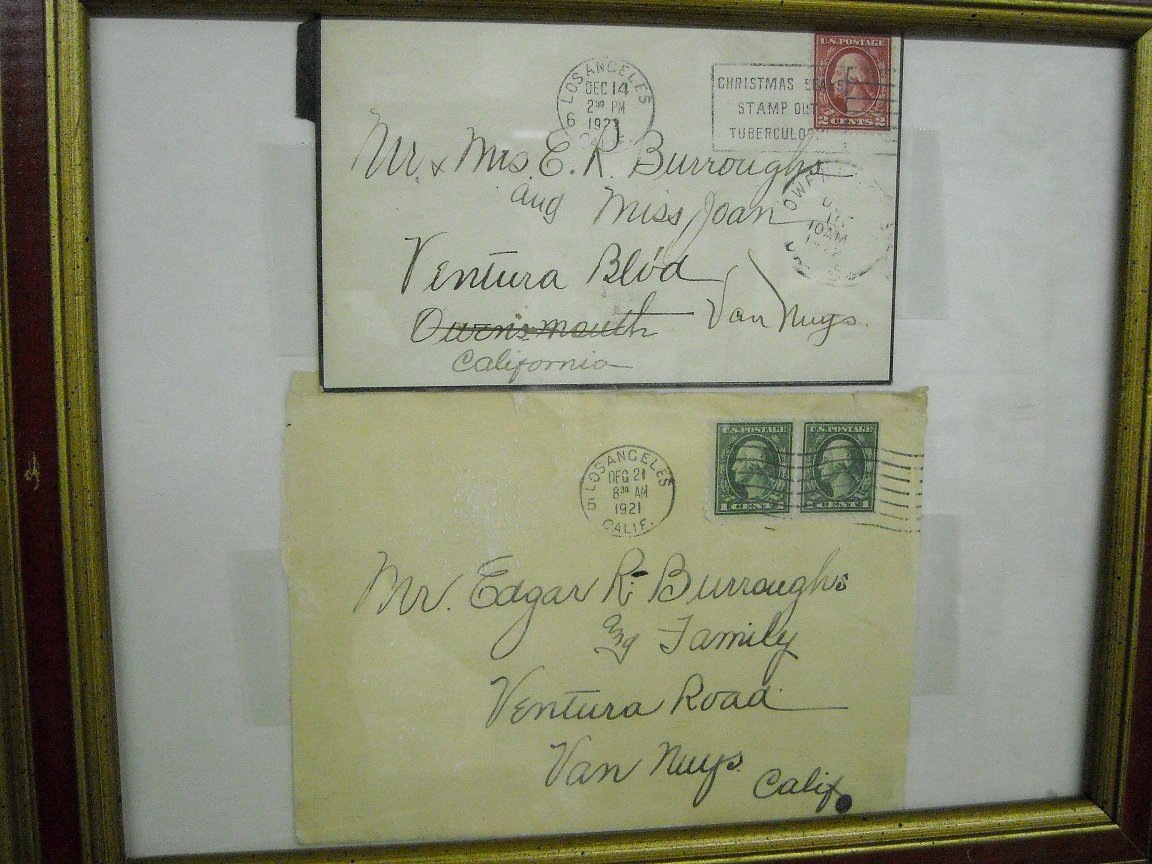 LOS ANGELES
DEC 14
2 30 PM
6
CHRISTMAS SEALS
STAMP OUT
TUBERCULOSIS
U.S. POSTAGE
2 CENTS 2
Mr. & Mrs. E. R. Burroughs
and Miss Joan
10 AM
Ventura Blv'd
Owensmouth Van Nuys.
California
LOS ANGELES
DEC 21
8 30 AM
1921
5
CALIF.
U.S. POSTAGE U.S. POSTAGE
1 CENT 1 1 CENT 1
Mr. Edgar R. Burroughs
and Family
Ventura Road
Van Nuys.
Calif.